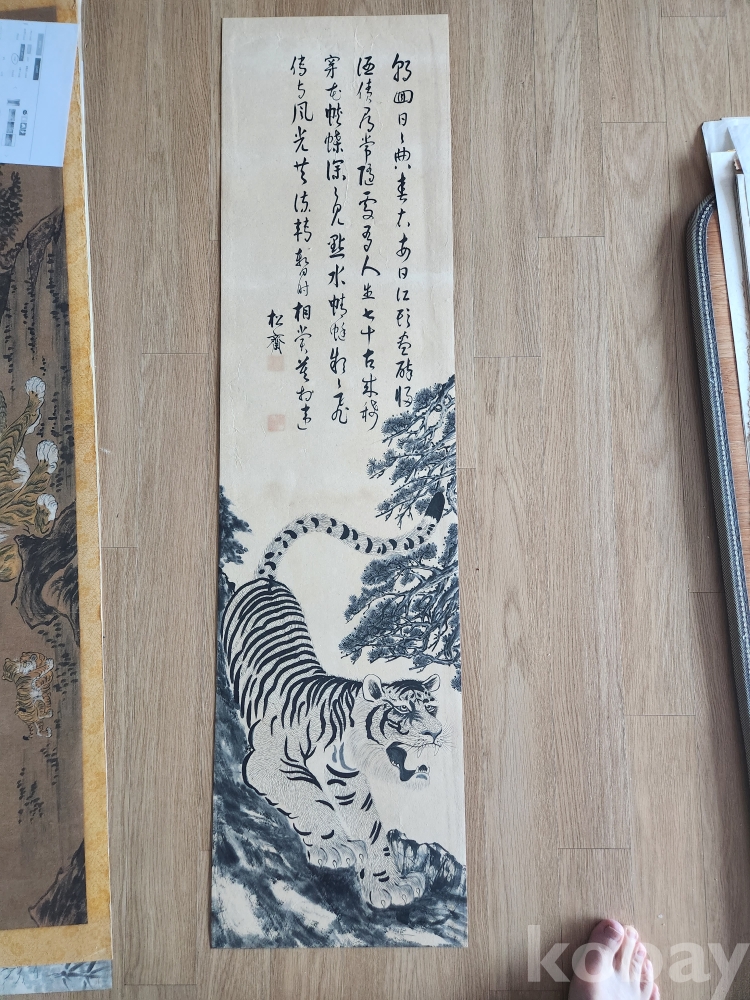 朝回日々典春衣每日江頭盡醉歸
酒債尋常隨處有人生七十古來稀
穿花蛺蝶深々見點水蜻蜓款々飛
傳与風光共流轉暫時相賞莫相違
松齋
kobay